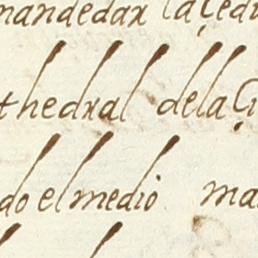 mandedar la çedu
thedral dela Çi
do el medio ma